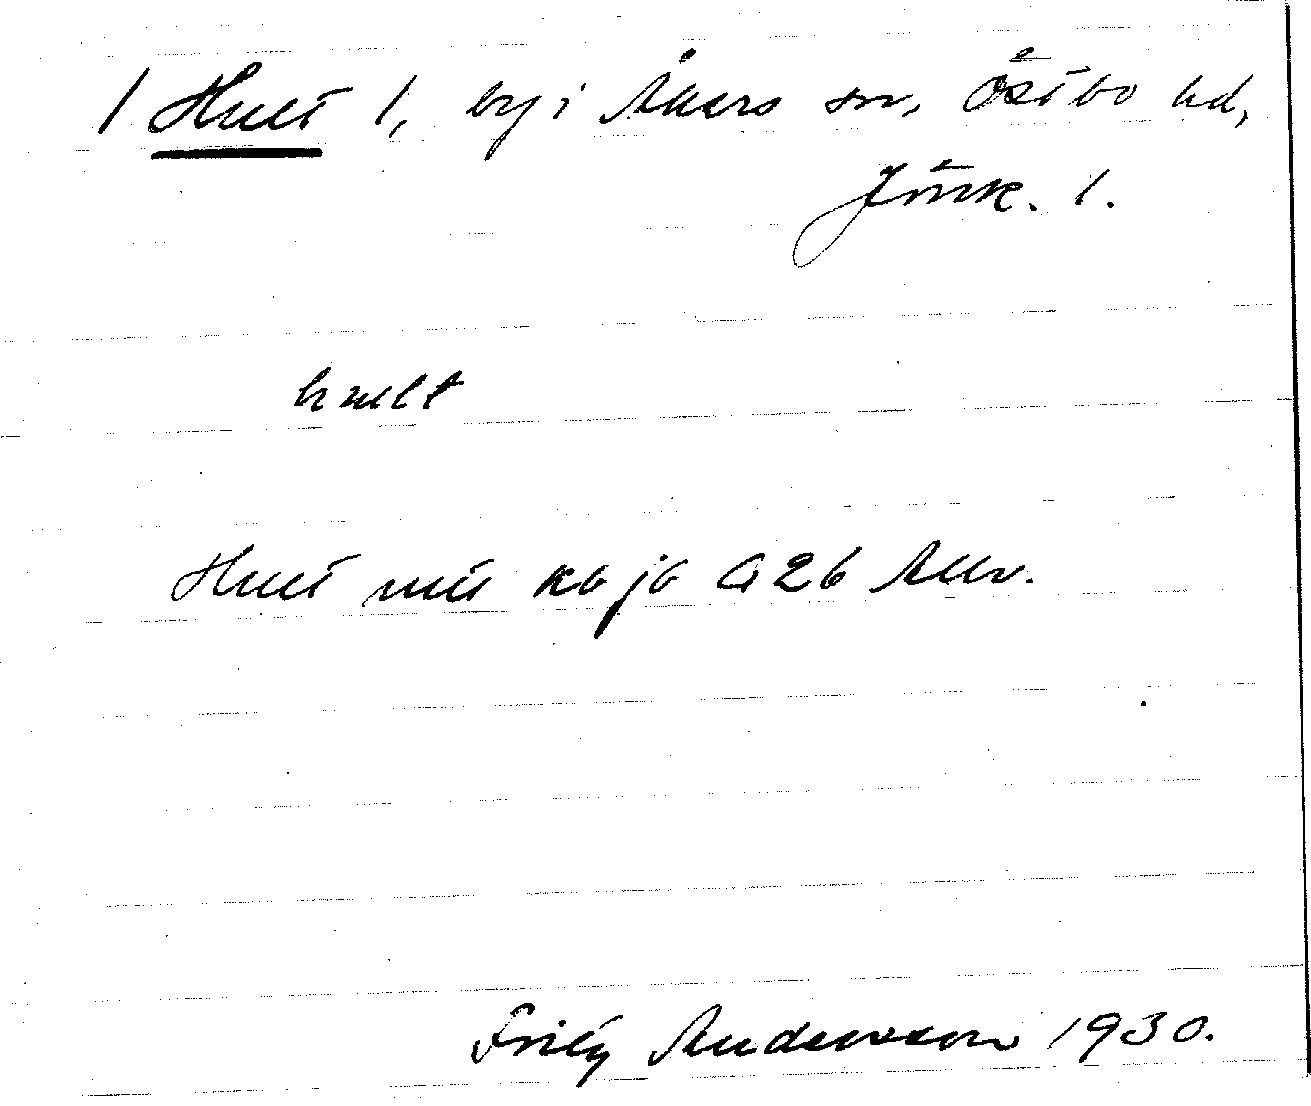 / Hult 1, by i Åkers sn, Östbo hd,
Jönk. l.
hult
Hult mtl ko jb A 26 Allv.
Fritz Andersson 1930.